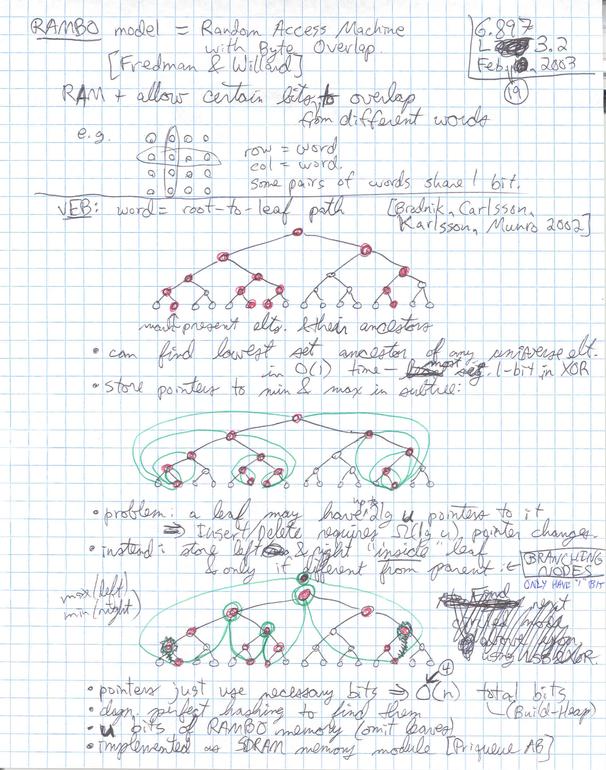 RAMBO model = Random Access Machine
with Byte Overlap.
[Fredman & Willard]
6.897
L 3.2
Feb. , 2003
19
RAM + allow certain bits to overlap
from different words
e.g.
row = word
col = word.
some pairs of words share 1 bit.
VEB: word = root-to-leaf path
[Brodnik, Carlsson,
Karlsson, Munro 2002]
mark present elts. & their ancestors
• can find lowest set ancestor of any universe elt.
in O(1) time – most sig. 1-bit in XOR
• store pointers to min & max in subtree:
• problem: a leaf may have up to 2 lg u pointers to it
⇒ Insert/Delete requires Ω(lg u) pointer changes.
• instead: store left & right "inside" leaf
& only if different from parent:
BRANCHING
NODES
ONLY HAVE "1" BIT
max(left)
min(right)
Find next
using XOR.
• pointers just use necessary bits ⇒ O(n) total bits
u
(Build-Heap)
• dyn. perfect hashing to find them
• u bits of RAMBO memory (omit leaves)
• implemented as SDRAM memory module [Priqueue AB]